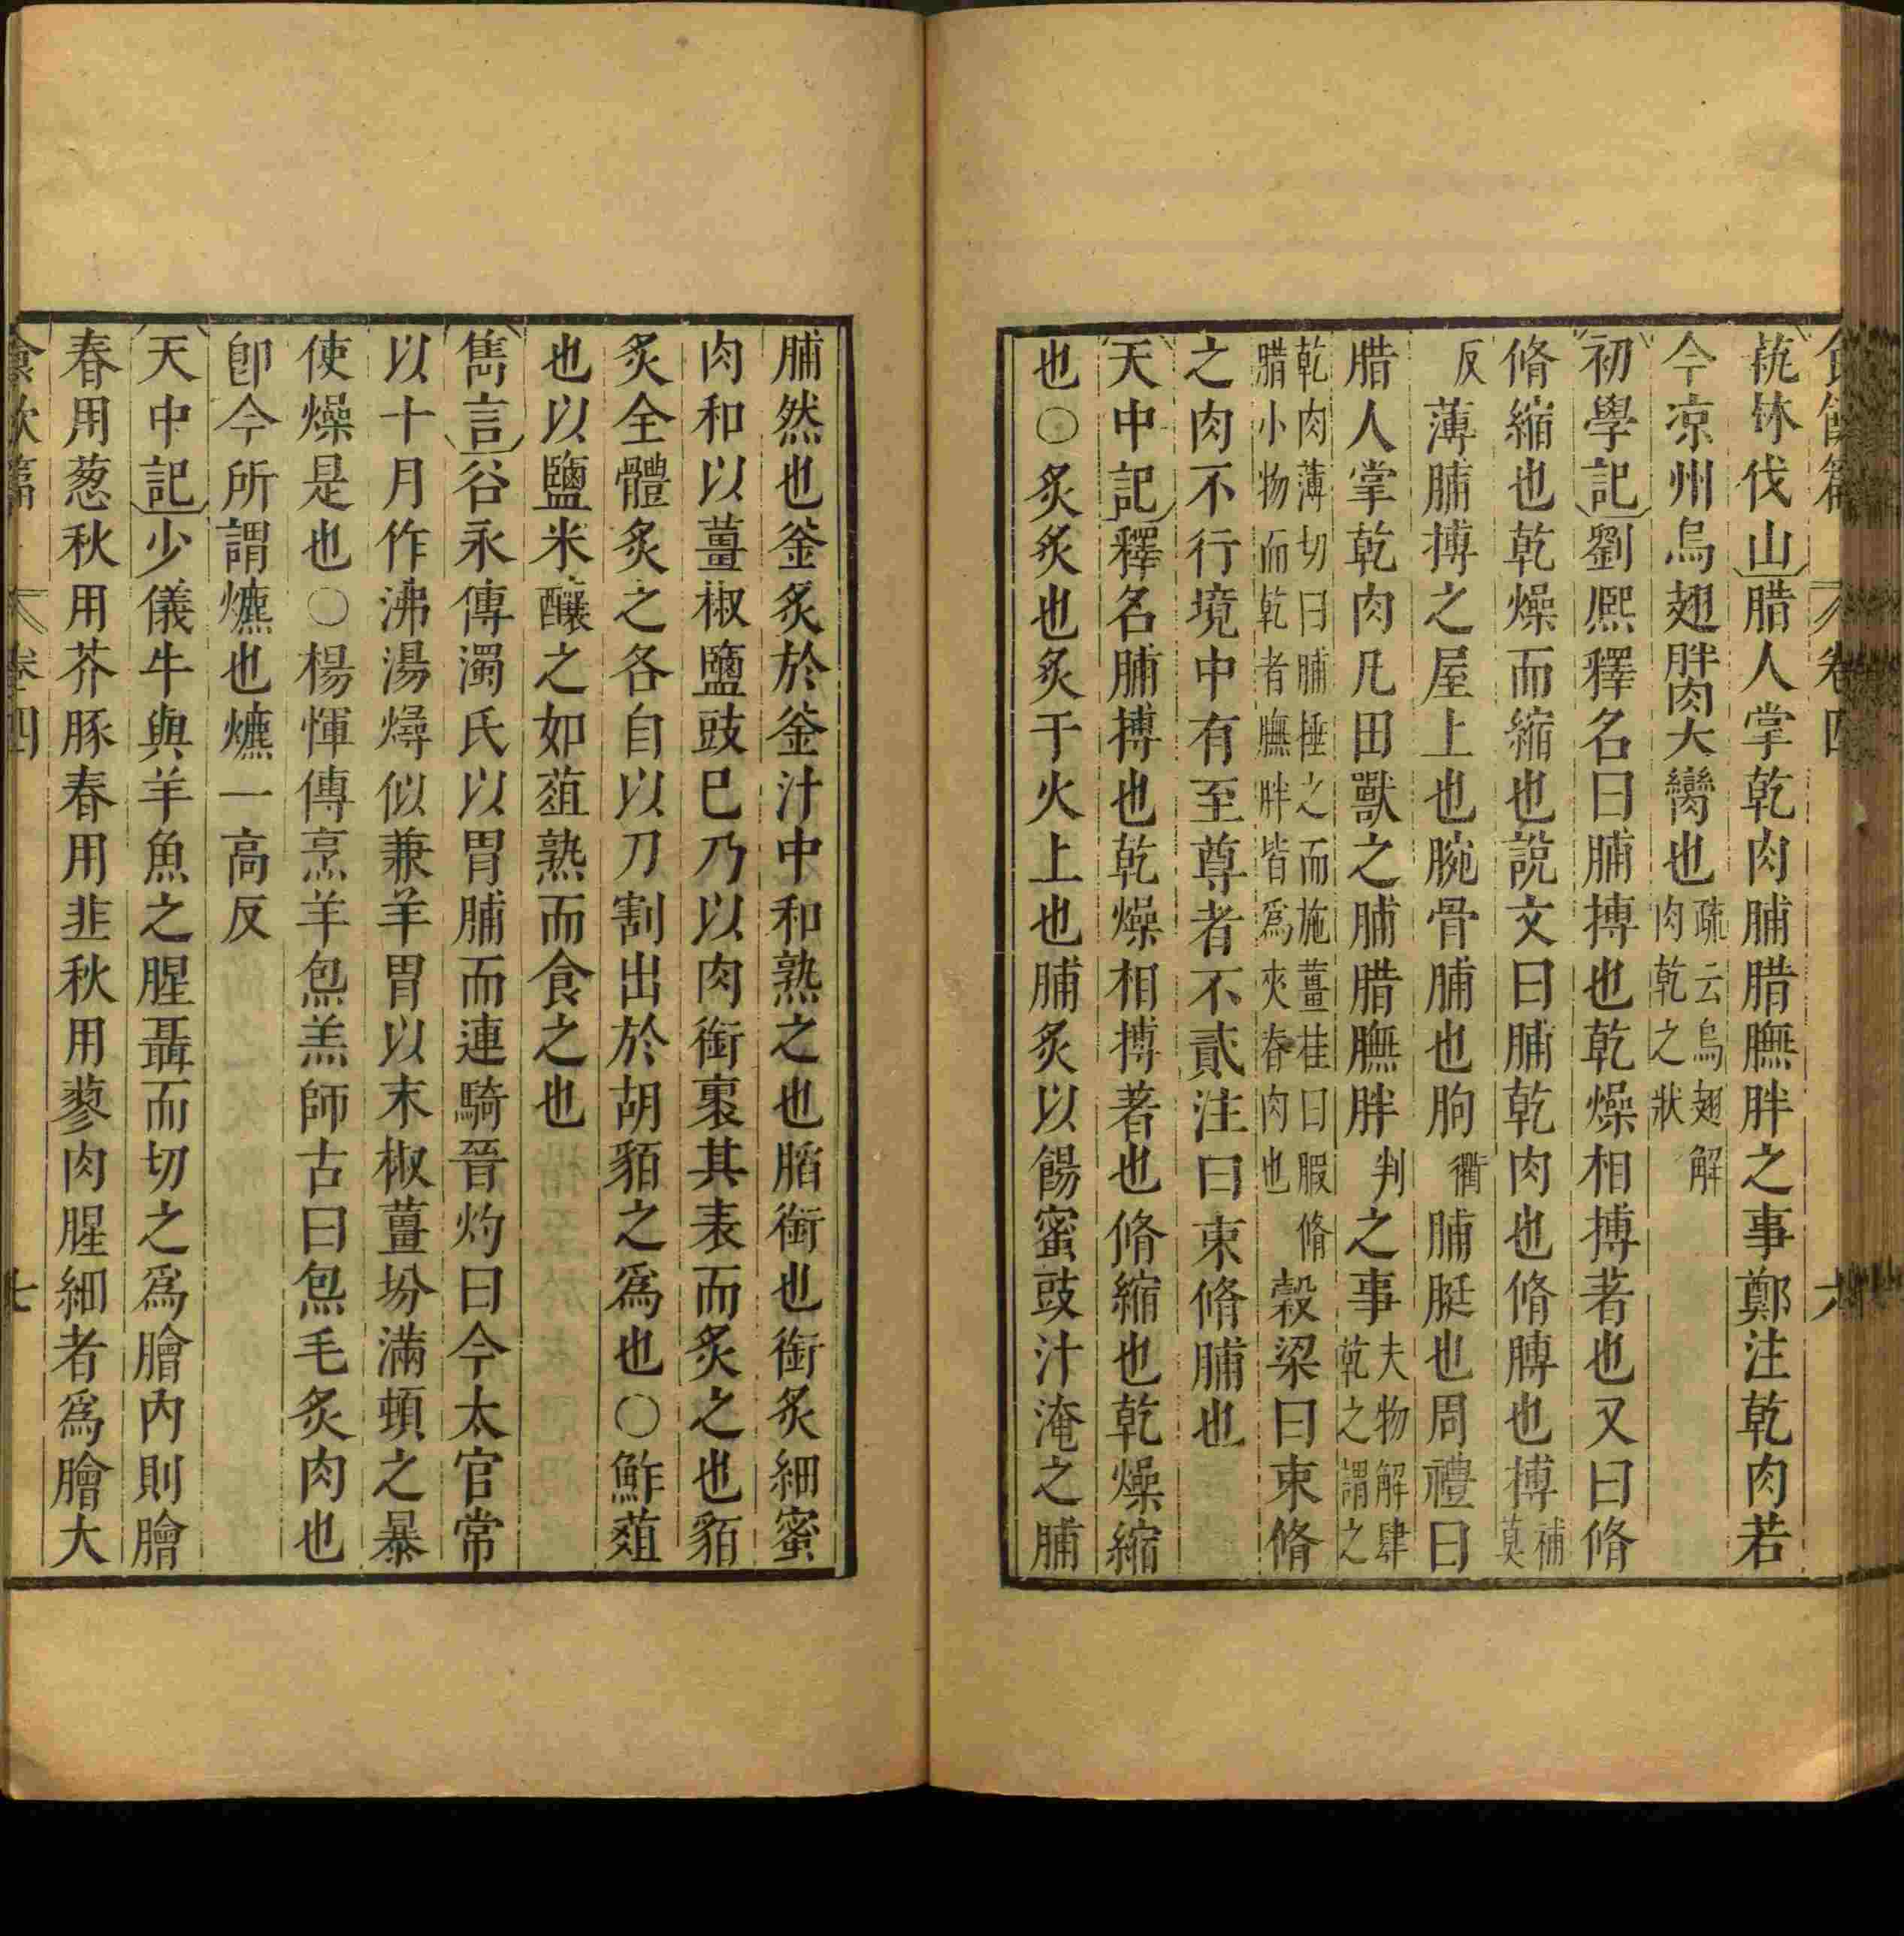 卷四　六
蓺林伐山腊人掌乾肉脯腊膴胖之事鄭注乾肉若
今凉州烏翅胖肉大臠也疏云烏翅解肉乾之狀
初學記劉熈釋名曰脯搏也乾燥相搏著也又曰脩
脩縮也乾燥而縮也說文曰脯乾肉也脩膊也搏補莫
反薄脯搏之屋上也腕骨脯也朐衢脯脡也周禮曰
腊人掌乾肉凡田獸之脯腊膴胖判之事夫物解肆乾之謂之
乾肉薄切曰脯捶之而施薑桂曰腶脩腊小物而乾者膴胖皆爲夾脊肉也穀梁曰束脩
之肉不行境中有至尊者不貳注曰束脩脯也
天中記釋名脯搏也乾燥相搏著也脩縮也乾燥縮
也〇炙炙也炙于火上也脯炙以餳蜜豉汁淹之脯
脯然也釜炙於釜汁中和熟之也䐄銜也銜炙細蜜
肉和以薑椒鹽豉巳乃以肉銜裹其表而炙之也貊
炙全體炙之各自以刀割出於胡貊之爲也〇鮓葅
也以鹽米釀之如葅熟而食之也
雋言谷永傳濁氏以胃脯而連騎晉灼曰今太官常
以十月作沸湯燖似兼羊胃以末椒薑坋滿頓之暴
使燥是也〇楊惲傳烹羊炰羔師古曰炰毛炙肉也
卽今所謂爊也爊一高反
天中記少儀牛與羊魚之腥聶而切之爲膾內則膾
春用葱秋用芥豚春用韭秋用蓼肉腥細者爲膾大
食飲篇　卷四　七